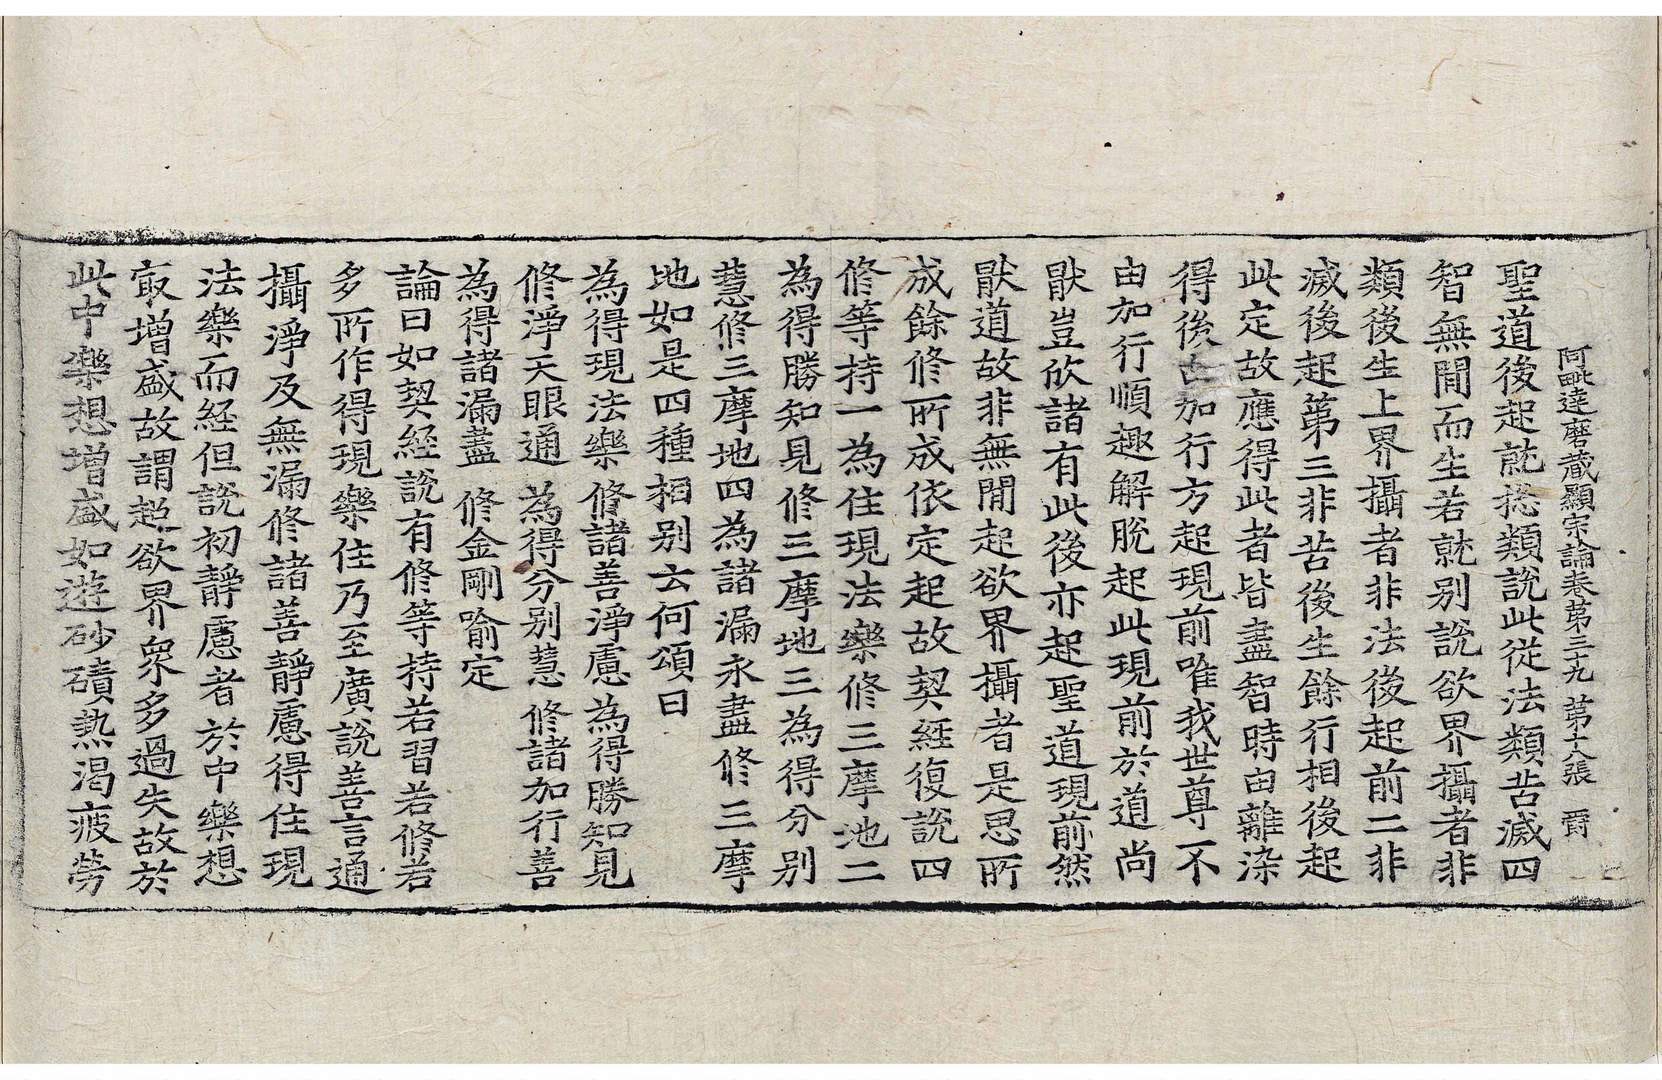 阿毗達磨藏顯宗論卷第三十九 第十八張 爵
聖道後起就惣類說此從法類苦滅四
智無閒而生若就別說欲界攝者非
類後生上界攝者非法後起前二非
滅後起第三非苦後生餘行相後起
此定故應得此者皆盡智時由離染
得後加行方起現前唯我世尊不
由加行順趣解脫起此現前於道尚
猒豈欣諸有此後亦起聖道現前然
猒道故非無閒起欲界攝者是思所
成餘修所成依定起故契經復說四
修等持一為住現法樂修三摩地二
為得勝知見修三摩地三為得分別
慧修三摩地四為諸漏永盡修三摩
地如是四種相別云何頌曰
為得現法樂 修諸善淨慮 為得勝知見
修淨天眼通 為得分別慧 修諸加行善
為得諸漏盡 修金剛喻定
論曰如契經說有修等持若習若修若
多所作得現樂住乃至廣說善言通
攝淨及無漏修諸善靜慮得住現
法樂而經但說初靜慮者於中樂想
㝡增盛故謂超欲界衆多過失故於
此中樂想增盛如遊砂磧熱渴疲勞